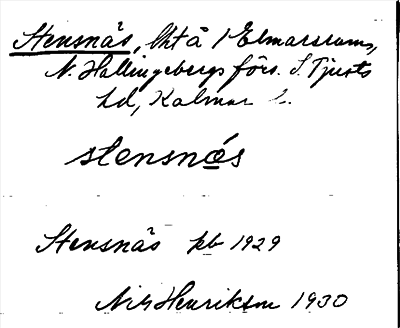 Stensnäs, lht å 1 Elmarsrums,
N. Hallingebergs förs. S. Tjusts
hd, Kalmar l.
stensnäs
Stensnäs jb 1929
Nils Henrikson 1930